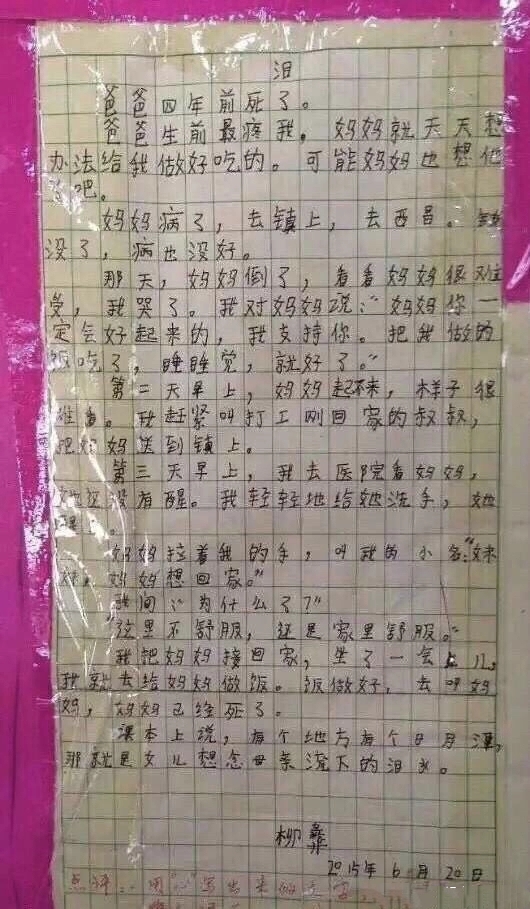 泪
爸爸四年前死了。
爸爸生前最疼我，妈妈就天天想
办法给我做好吃的。可能妈妈也想他
了吧。
妈妈病了，去镇上，去西昌。钱
没了，病也没好。
那天，妈妈倒了，看看妈妈很难
受，我哭了。我对妈妈说：“妈妈你一
定会好起来的，我支持你。把我做的
饭吃了，睡睡觉，就好了。”
第二天早上，妈妈起不来，样子很
难看。我赶紧叫打工刚回家的叔叔，
把妈妈送到镇上。
第三天早上，我去医院看妈妈，
她还没有醒。我轻轻地给她洗手，她
醒了。
妈妈拉着我的手，叫我的小名：“妹
妹，妈妈想回家。”
我问：“为什么了？”
“这里不舒服，还是家里舒服。”
我把妈妈接回家，坐了一会儿，
我就去给妈妈做饭。饭做好，去叫妈
妈，妈妈已经死了。
课本上说，有个地方有个日月潭，
那就是女儿想念母亲流下的泪水。
柳彝
2015年6月20日
点评：用“心”写出来的文字